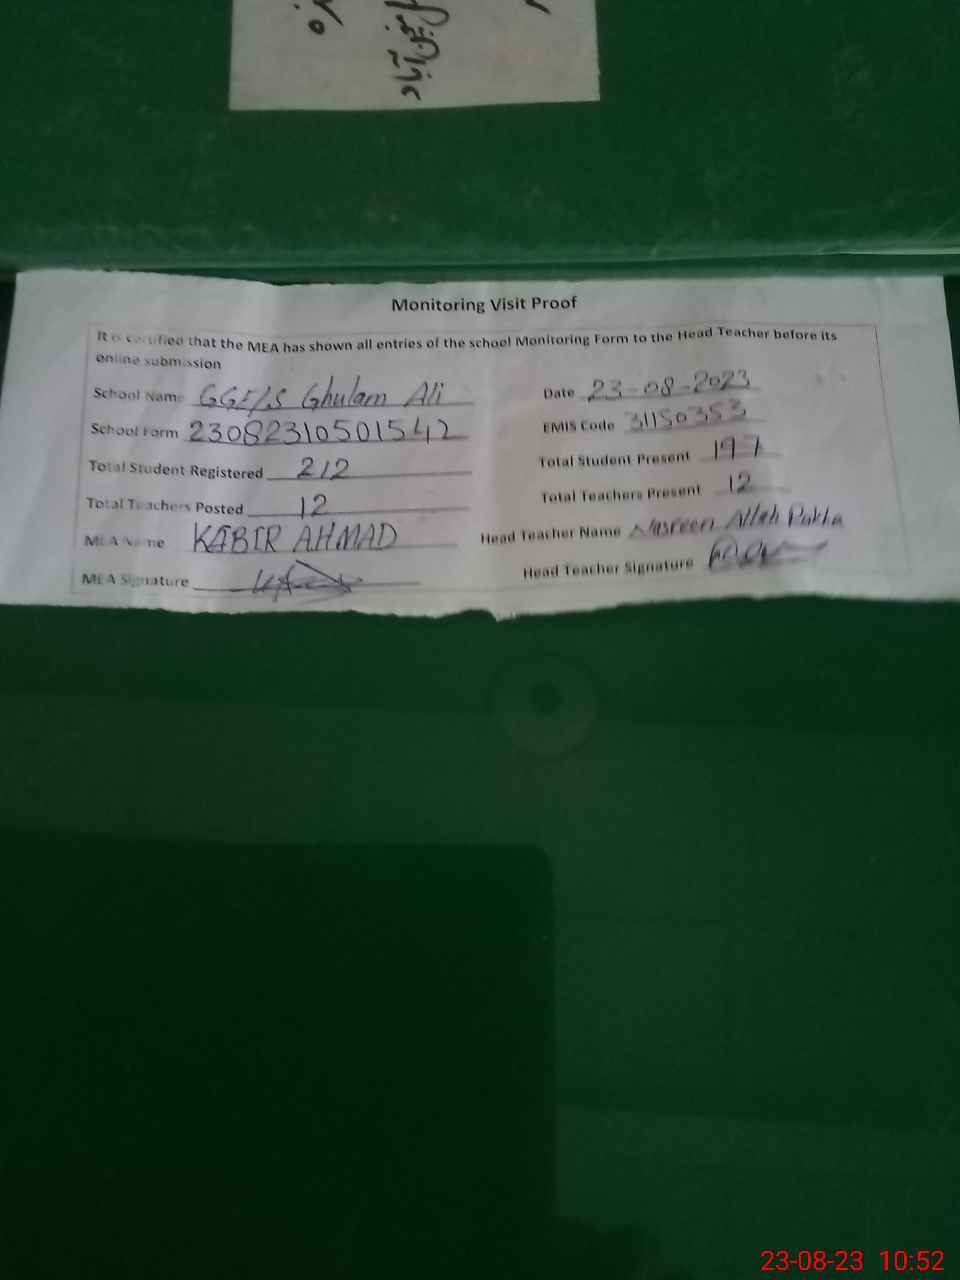 Monitoring Visit Proof
It is certified that the MEA has shown all entries of the school Monitoring Form to the Head Teacher before its
online submission
School Name GGE/S Ghulam Ali Date 23-08-2023
School Form 23082310501542 EMIS Code 31150353
Total Student Registered 212 Total Student Present 197
Total Teachers Posted 12 Total Teachers Present 12
MEA Name KABIR AHMAD Head Teacher Name Nasreen Allah Rakha
MEA Signature Head Teacher Signature
23-08-23 10:52